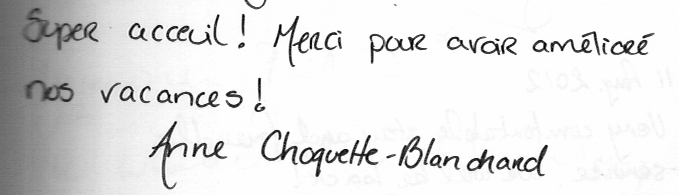 Super acceuil! Merci pour avoir amélioré
nos vacances!
Anne Choquette-Blanchard